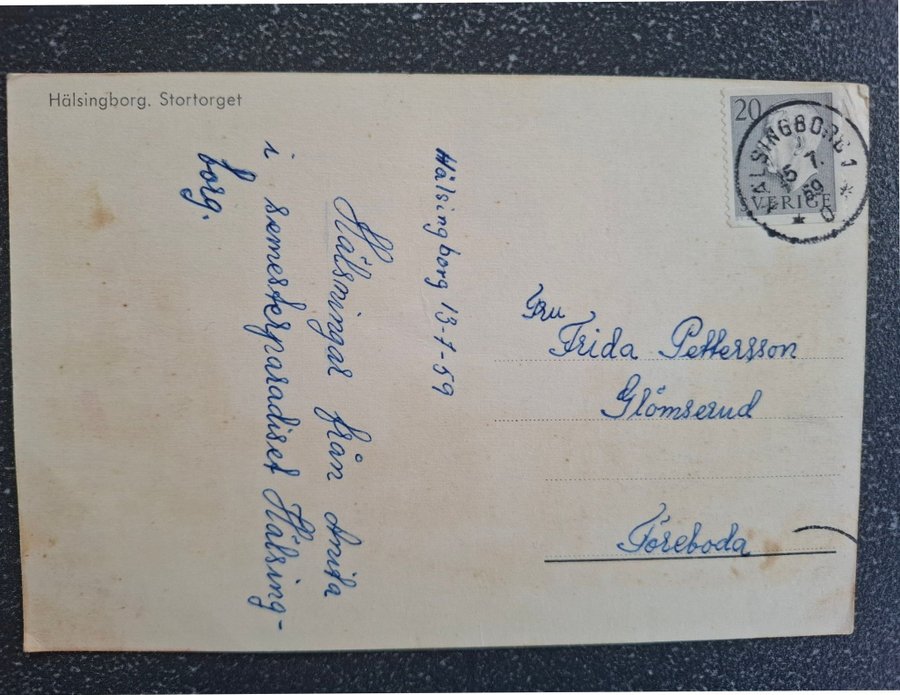 Hälsingborg. Stortorget
Hälsingborg 13-7-59
Hälsningar från Anita
i semesterparadiset Hälsing-
borg.
20
SVERIGE
HÄLSINGBORG 1
15 7.
59
Fru
Frida Pettersson
Glömserud
Töreboda